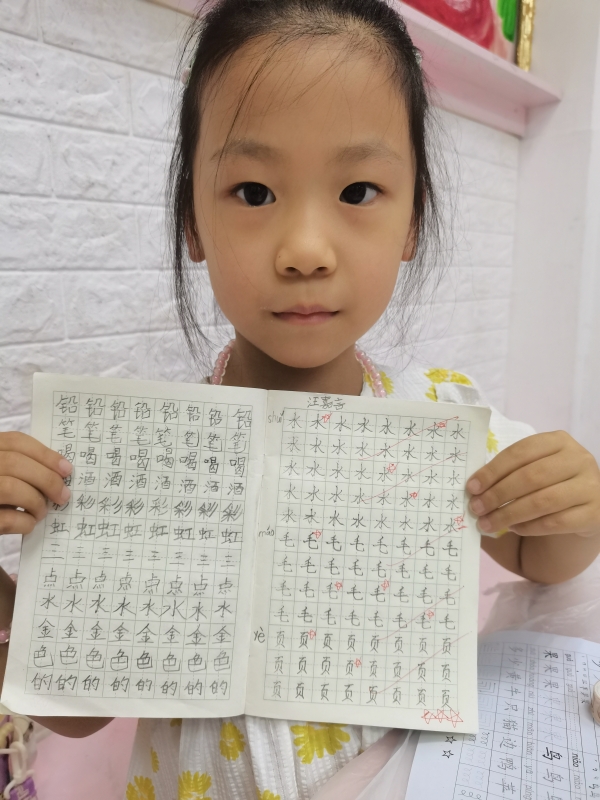 汪嘉
铅铅铅铅铅铅铅铅
笔笔笔笔笔笔笔笔
喝喝喝喝喝喝喝喝
酒酒酒酒酒酒酒
彩彩彩彩彩彩彩彩
虹虹虹虹虹虹虹虹
三三三三三三三三
点点点点点点点点
水水水水水水水水
金金金金金金金金
色色色色色色色色
的的的的的的的的
shuǐ 水水水水水水水水
水水水水水水水水
水水水水水水水水
水水水水水水水水
水水水水水水水水
máo 毛毛毛毛毛毛毛毛
毛毛毛毛毛毛毛毛
毛毛毛毛毛毛毛毛
毛毛毛毛毛毛毛毛
yè 页页页页页页页页
页页页页页页页页
页页页页页页页页
果 果
鸟 鸟
只 猫 边 鸭 苹